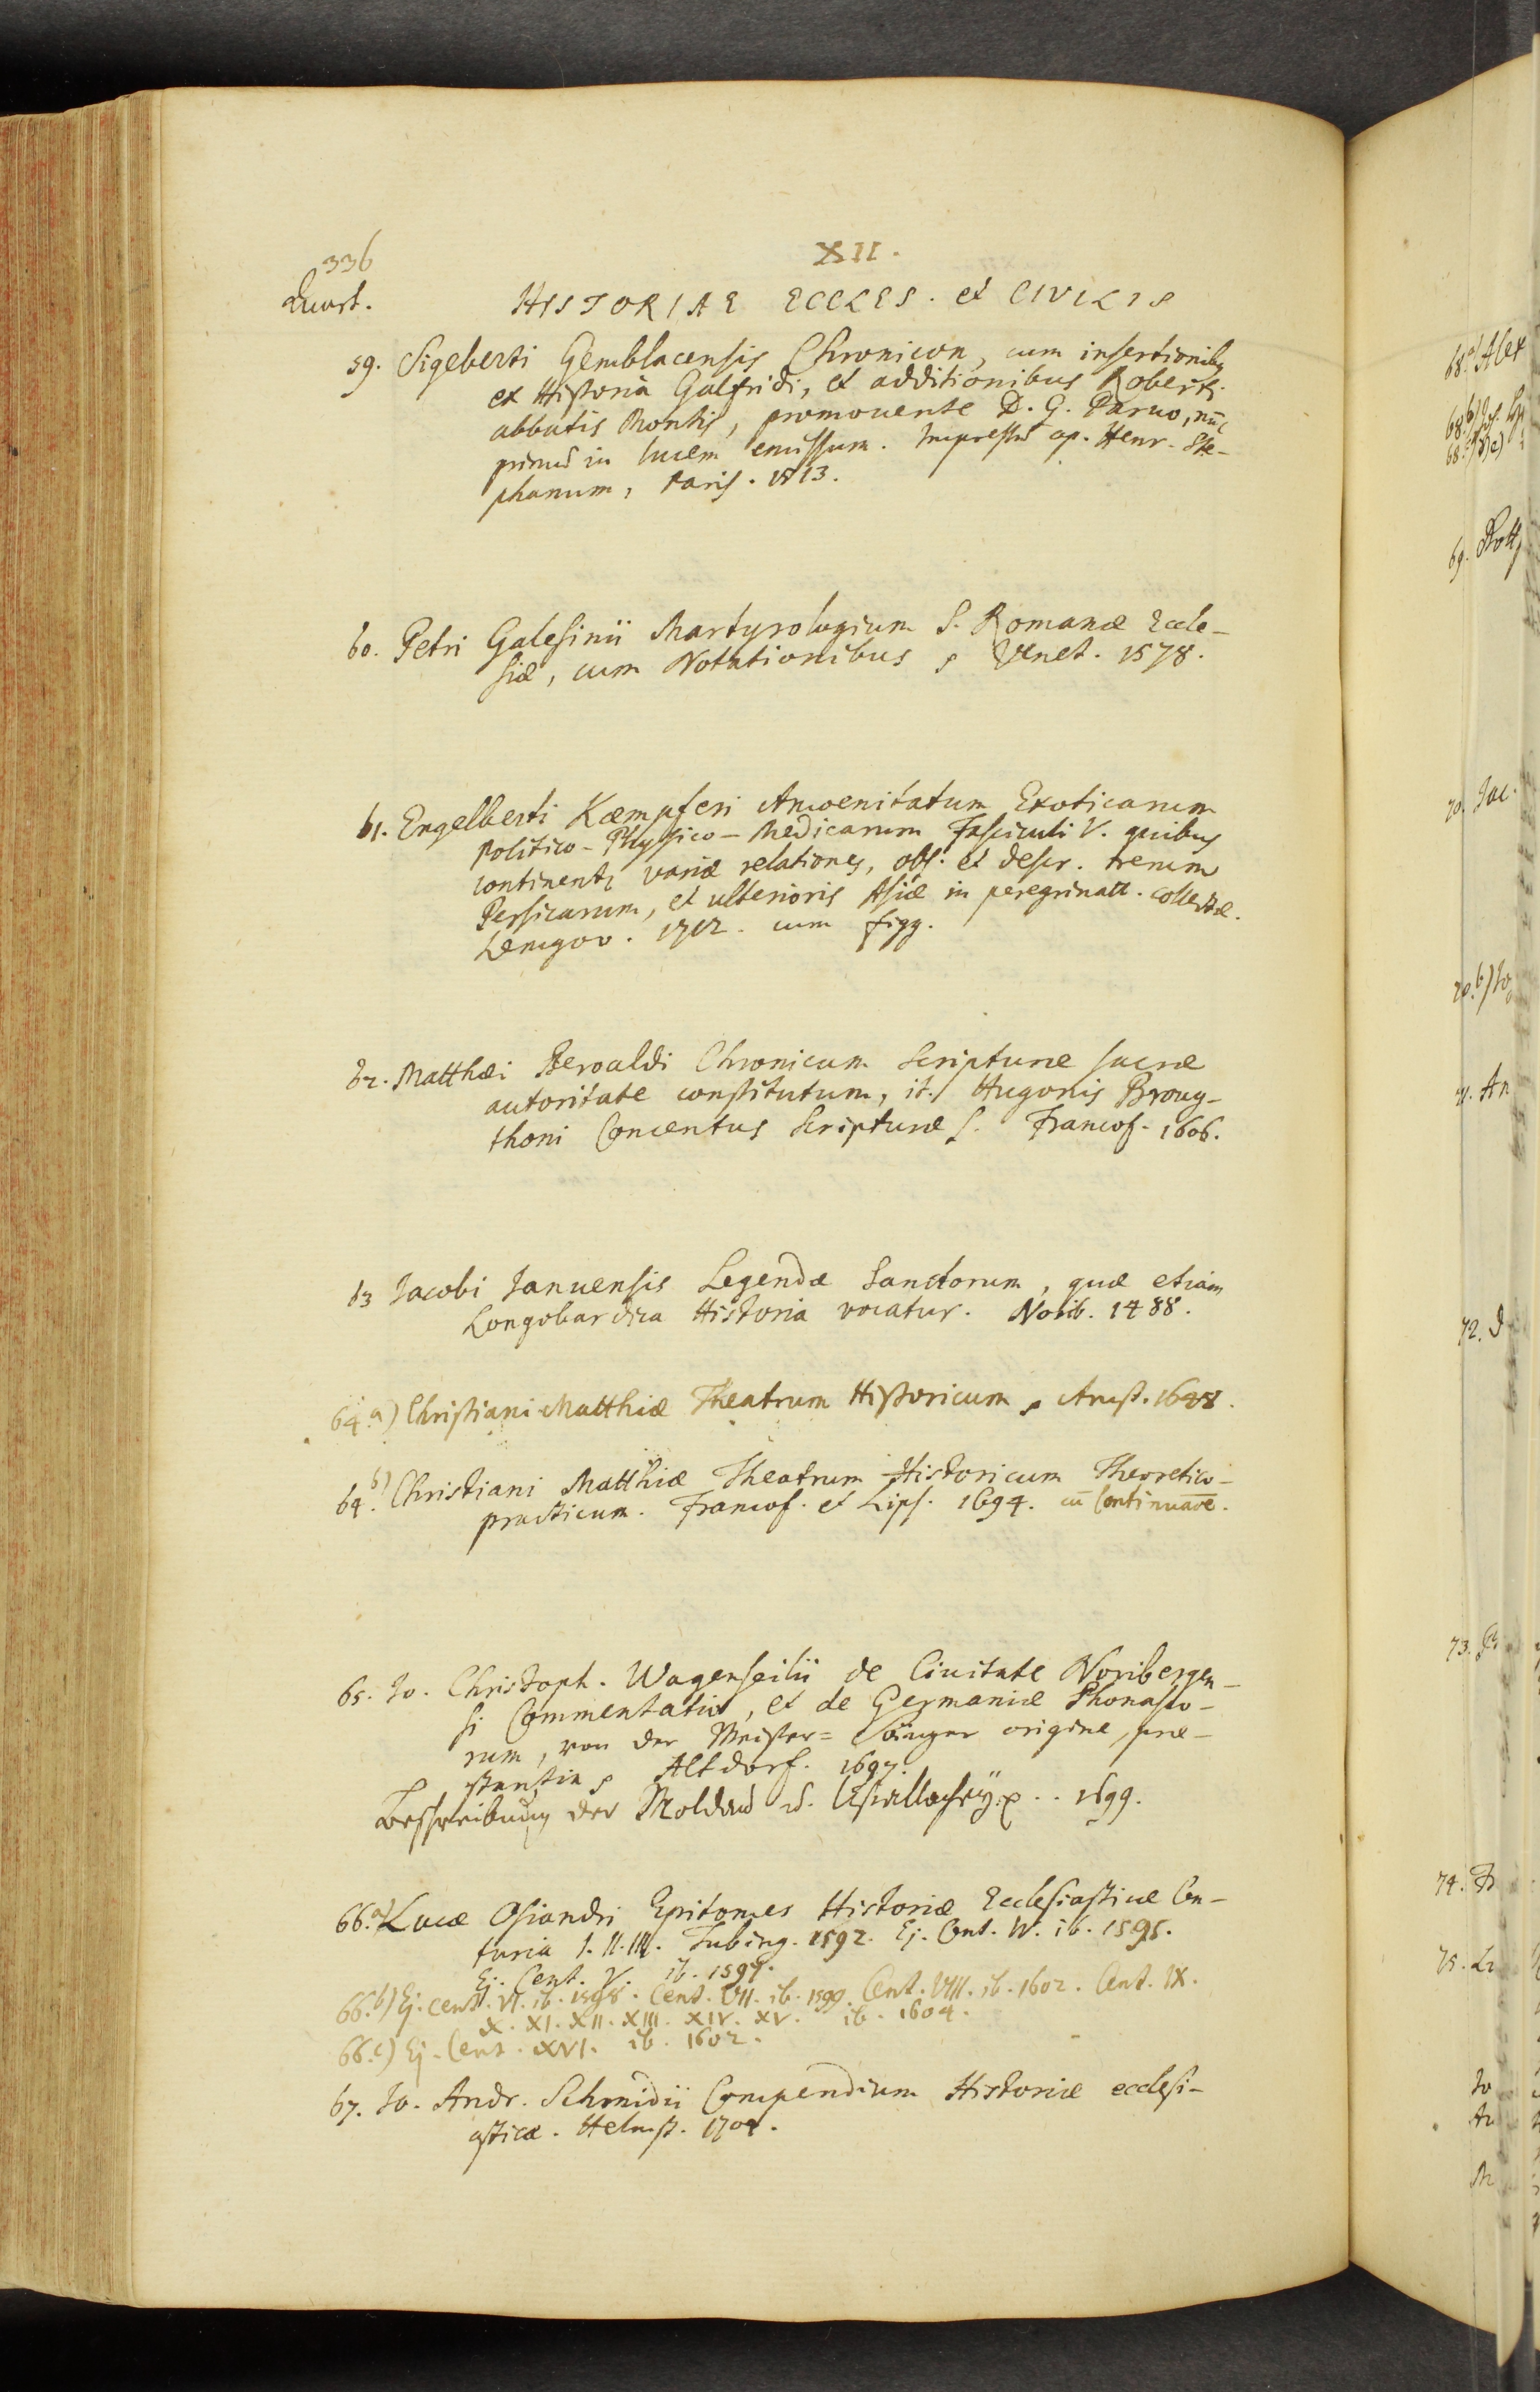 336
XII.
Quart.
HISTORIAE ECCLES. et CIVILIS
59. Sigeberti Gemblacensis Chronicon, cum insertionibq
ex Historia Galfridi, et additionibus Roberti
abbatis Montis, promovente D. G. Parvo, nūc
primū in lucem emissum. Impressū ap. Henr. Ste-
phanum, Paris. 1513.
60. Petri Galesinii Martyrologium S. Romanæ Eccle-
siæ, cum Notationibus Venet. 1578.
61. Engelberti Kæmpferi Amoenitatum Exoticarum
Politico-Physico-Medicarum Fasciculi V. quibus
continentr variæ relationes, obs. et descr. rerum
Persicarum, et ulterioris Asiæ in peregrinatt. collectæ.
Lemgov. 1712. cum figg.
62. Matthæi Beroaldi Chronicum Scripturæ sacræ
autoritate constitutum, it. Hugonis Broug-
thoni Concentus Scripturæ S. Francof. 1606.
63 Jacobi Januensis Legendæ Sanctorum, quæ etiam
Longobardica Historia vocatur. Norib. 1488.
64.a) Christiani Matthiæ Theatrum Historicum Amst. 1648.
64.b) Christiani Matthiæ Theatrum Historicum Theoretico-
practicum. Francof. et Lips. 1694. cū Continuaōe.
65. Jo. Christoph. Wagenseilii de Civitate Noribergen-
si Commentatio, et de Germaniæ Phonasco-
rum, von der Meister=Sänger origine, præ-
stantia Altdorf. 1697.
Beschreibung der Moldau u. Wallachey. 1699.
66.a) Lucæ Osiandri Epitomes Historiæ Ecclesiasticæ Cen-
turia I. II. III. Tubing. 1592. Ej. Cent. IV. ib. 1595.
Ej. Cent. V. ib. 1597.
66.b) Ej. cent. VI. ib. 1598. Cent. VII. ib. 1599. Cent. VIII. ib. 1602. Cent. IX.
X. XI. XII. XIII. XIV. XV. ib. 1604.
66.c) Ej. Cent. XVI. ib. 1602.
67. Jo. Andr. Schmidii Compendium Historiæ ecclesi-
asticæ. Helmst. 1704.